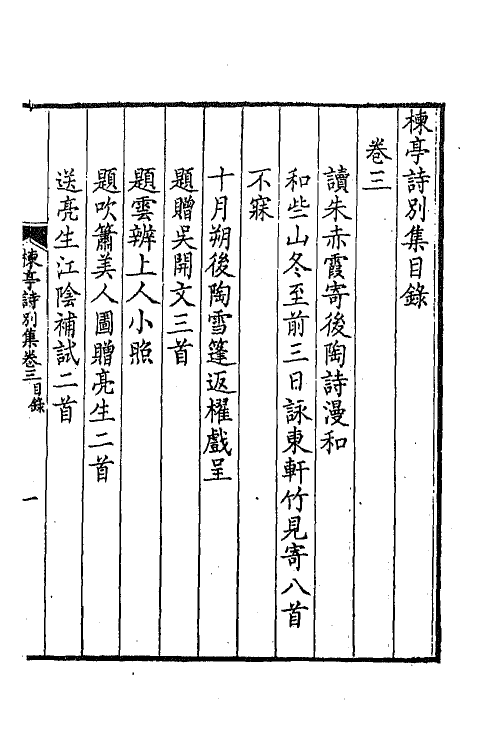 楝亭詩別集目錄
卷三
讀朱赤霞寄後陶詩漫和
和些山冬至前三日詠東軒竹見寄八首
不寐
十月朔後陶雪篷返櫂戲呈
題贈吳開文三首
題雲辨上人小照
題吹簫美人圖贈亮生二首
送亮生江陰補試二首
楝亭詩別集卷三目錄
一